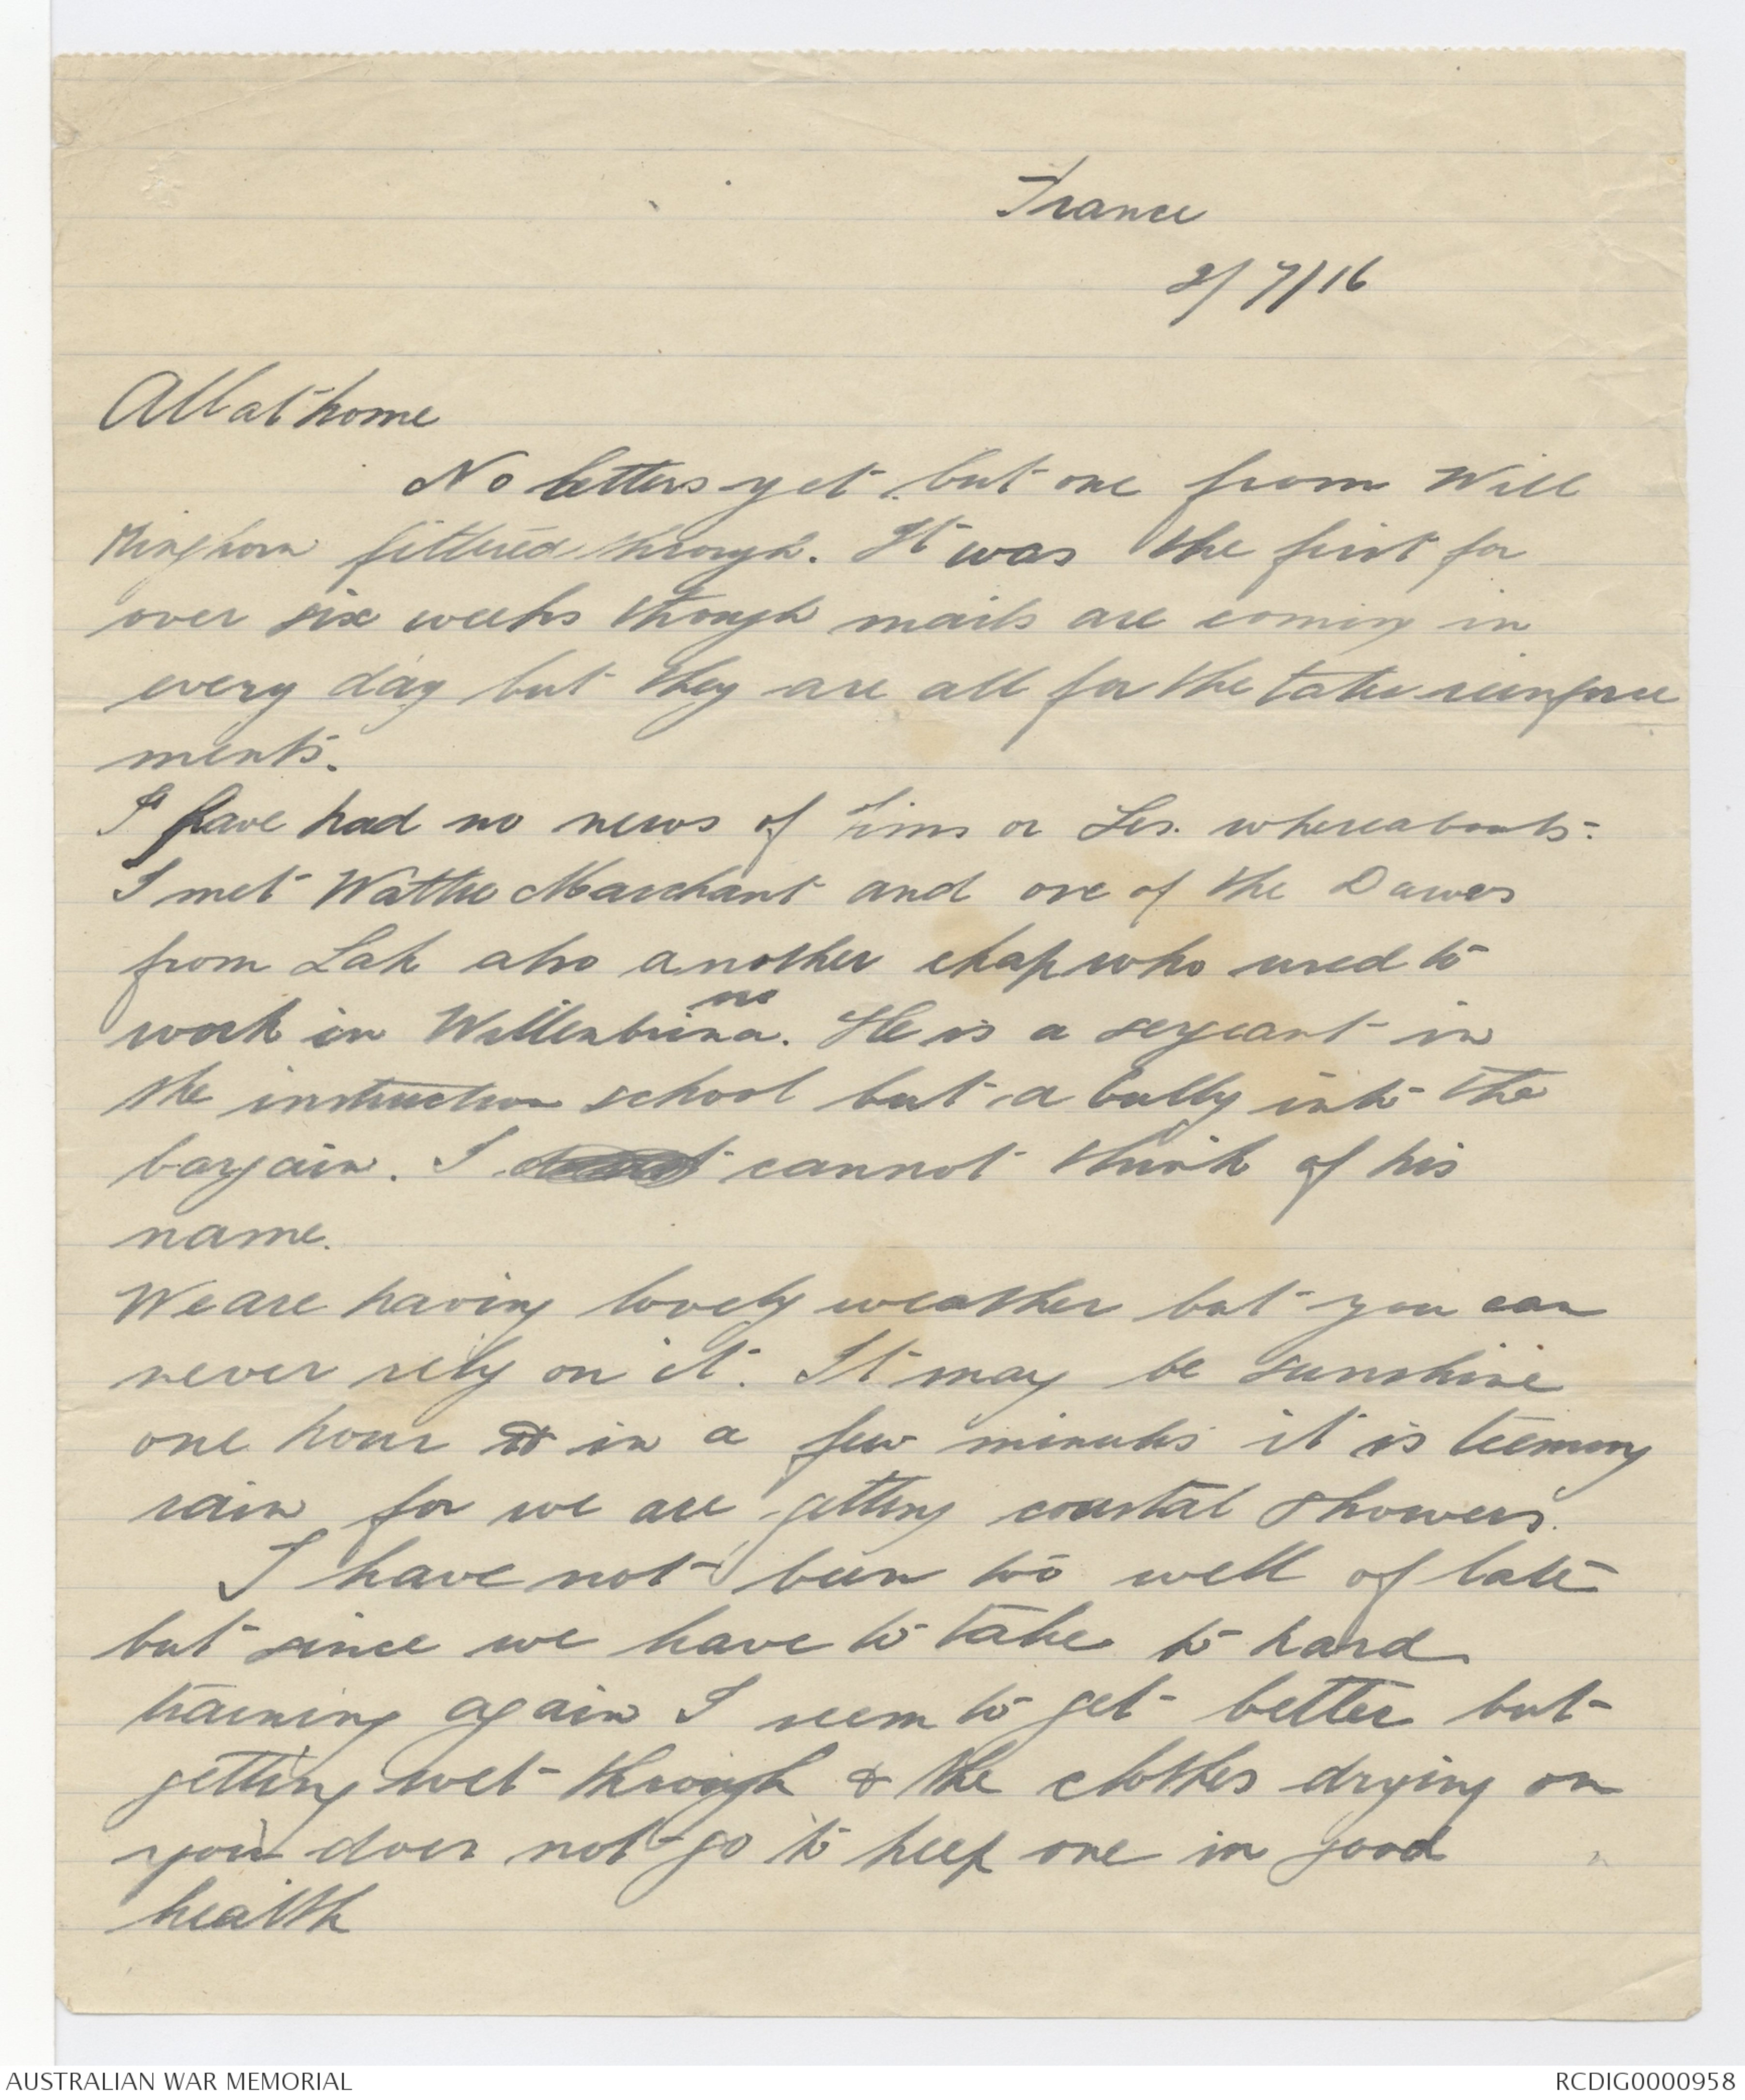 France
2/7/16
All at home
No letters yet but one from Will
Kinghorn filtered through. It was the first for
over six weeks though mails are coming in
every day but they are all for the later reinforce
ments.
I have had no news of Jims or Les. whereabouts.
I met Wattie Marchant and one of the Dawes
from Lah also another chap who used to
work in Willenbrina. He is a sergeant in
the instruction school but a bully into the
bargain. I cannot think of his
name.
We are having lovely weather but you can
never rely on it. It may be sunshine
one hour in a few minutes it is teeming
rain for we are getting coastal showers.
I have not been too well of late
but since we have to take to hard
training again I seem to get better but
getting wet through & the clothes drying on
you does not go to keep one in good
health
AUSTRALIAN WAR MEMORIAL
RCDIG0000958